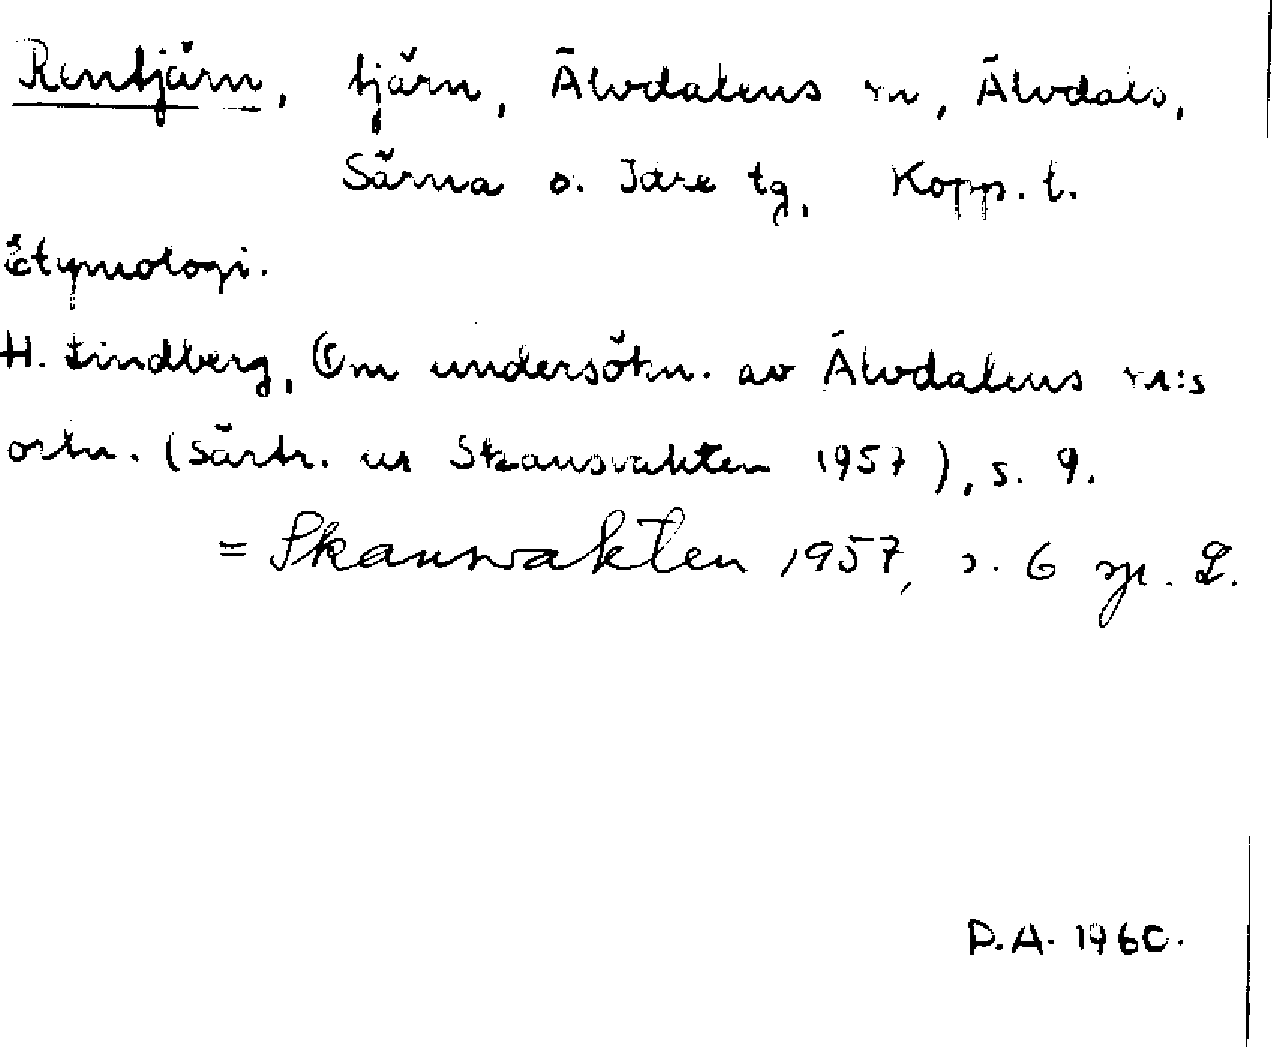 Rentjärn, tjärn, Älvdalens sn, Älvdals,
Särna o. Idre tg, Kopp. l.
Etymologi.
H. Lindberg, Om undersökn. av Älvdalens sn:s
ortn. (särtr. ur Skansvakten 1957), s. 9.
= Skansvakten 1957, s. 6 sp. 2.
D.A. 1960.